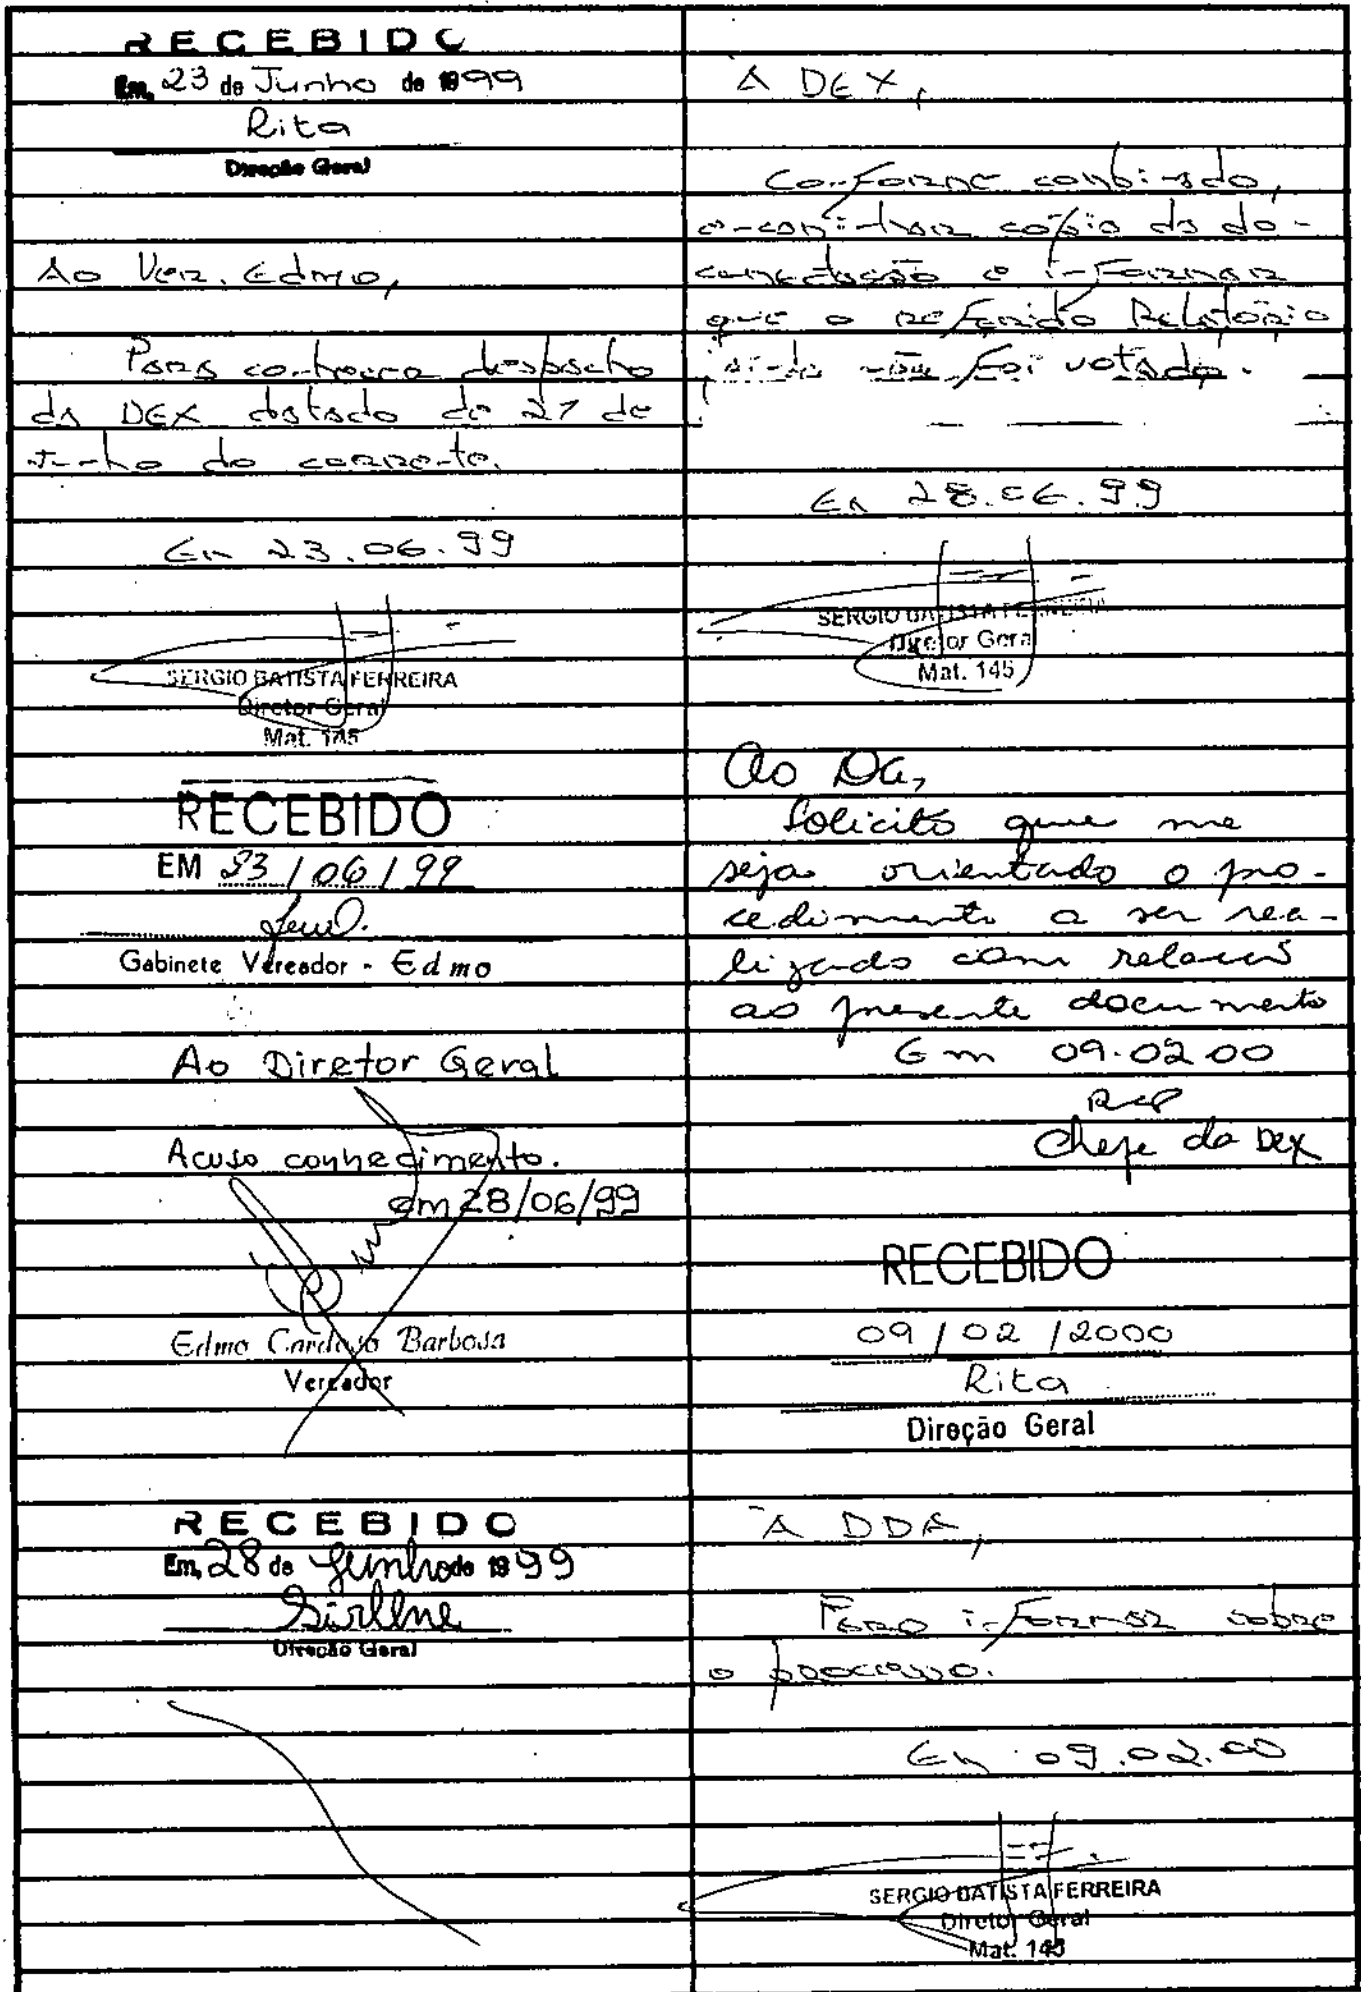 RECEBIDO
Em, 23 de Junho de 1999
Rita
Direção Geral
Ao Ver. Edmo,
Para conhecer despacho
da DEX datado de 21 de
Junho do corrente.
Em 23.06.99
SERGIO BATISTA FERREIRA
Diretor Geral
Mat. 145
RECEBIDO
EM 23/06/99
Gabinete Vereador - Edmo
Ao Diretor Geral
Acuso conhecimento.
em 28/06/99
Edmo Cardoso Barbosa
Vereador
RECEBIDO
Em, 28 de Junho de 1999
Sirlene
Direção Geral
À DEX,
Conforme combinado,
encaminhar cópia da do-
cumentação e informar
que o referido Relatório
ainda não foi votado.
Em 28.06.99
SERGIO BATISTA FERREIRA
Diretor Geral
Mat. 145
Ao DG,
Solicito que me
seja orientado o pro-
cedimento a ser rea-
lizado com relação
ao presente documento
Em 09.02.00
Chefe da Dex
RECEBIDO
09/02/2000
Rita
Direção Geral
À DDA,
Para informar sobre
o processo.
Em 09.02.00
SERGIO BATISTA FERREIRA
Diretor Geral
Mat. 145